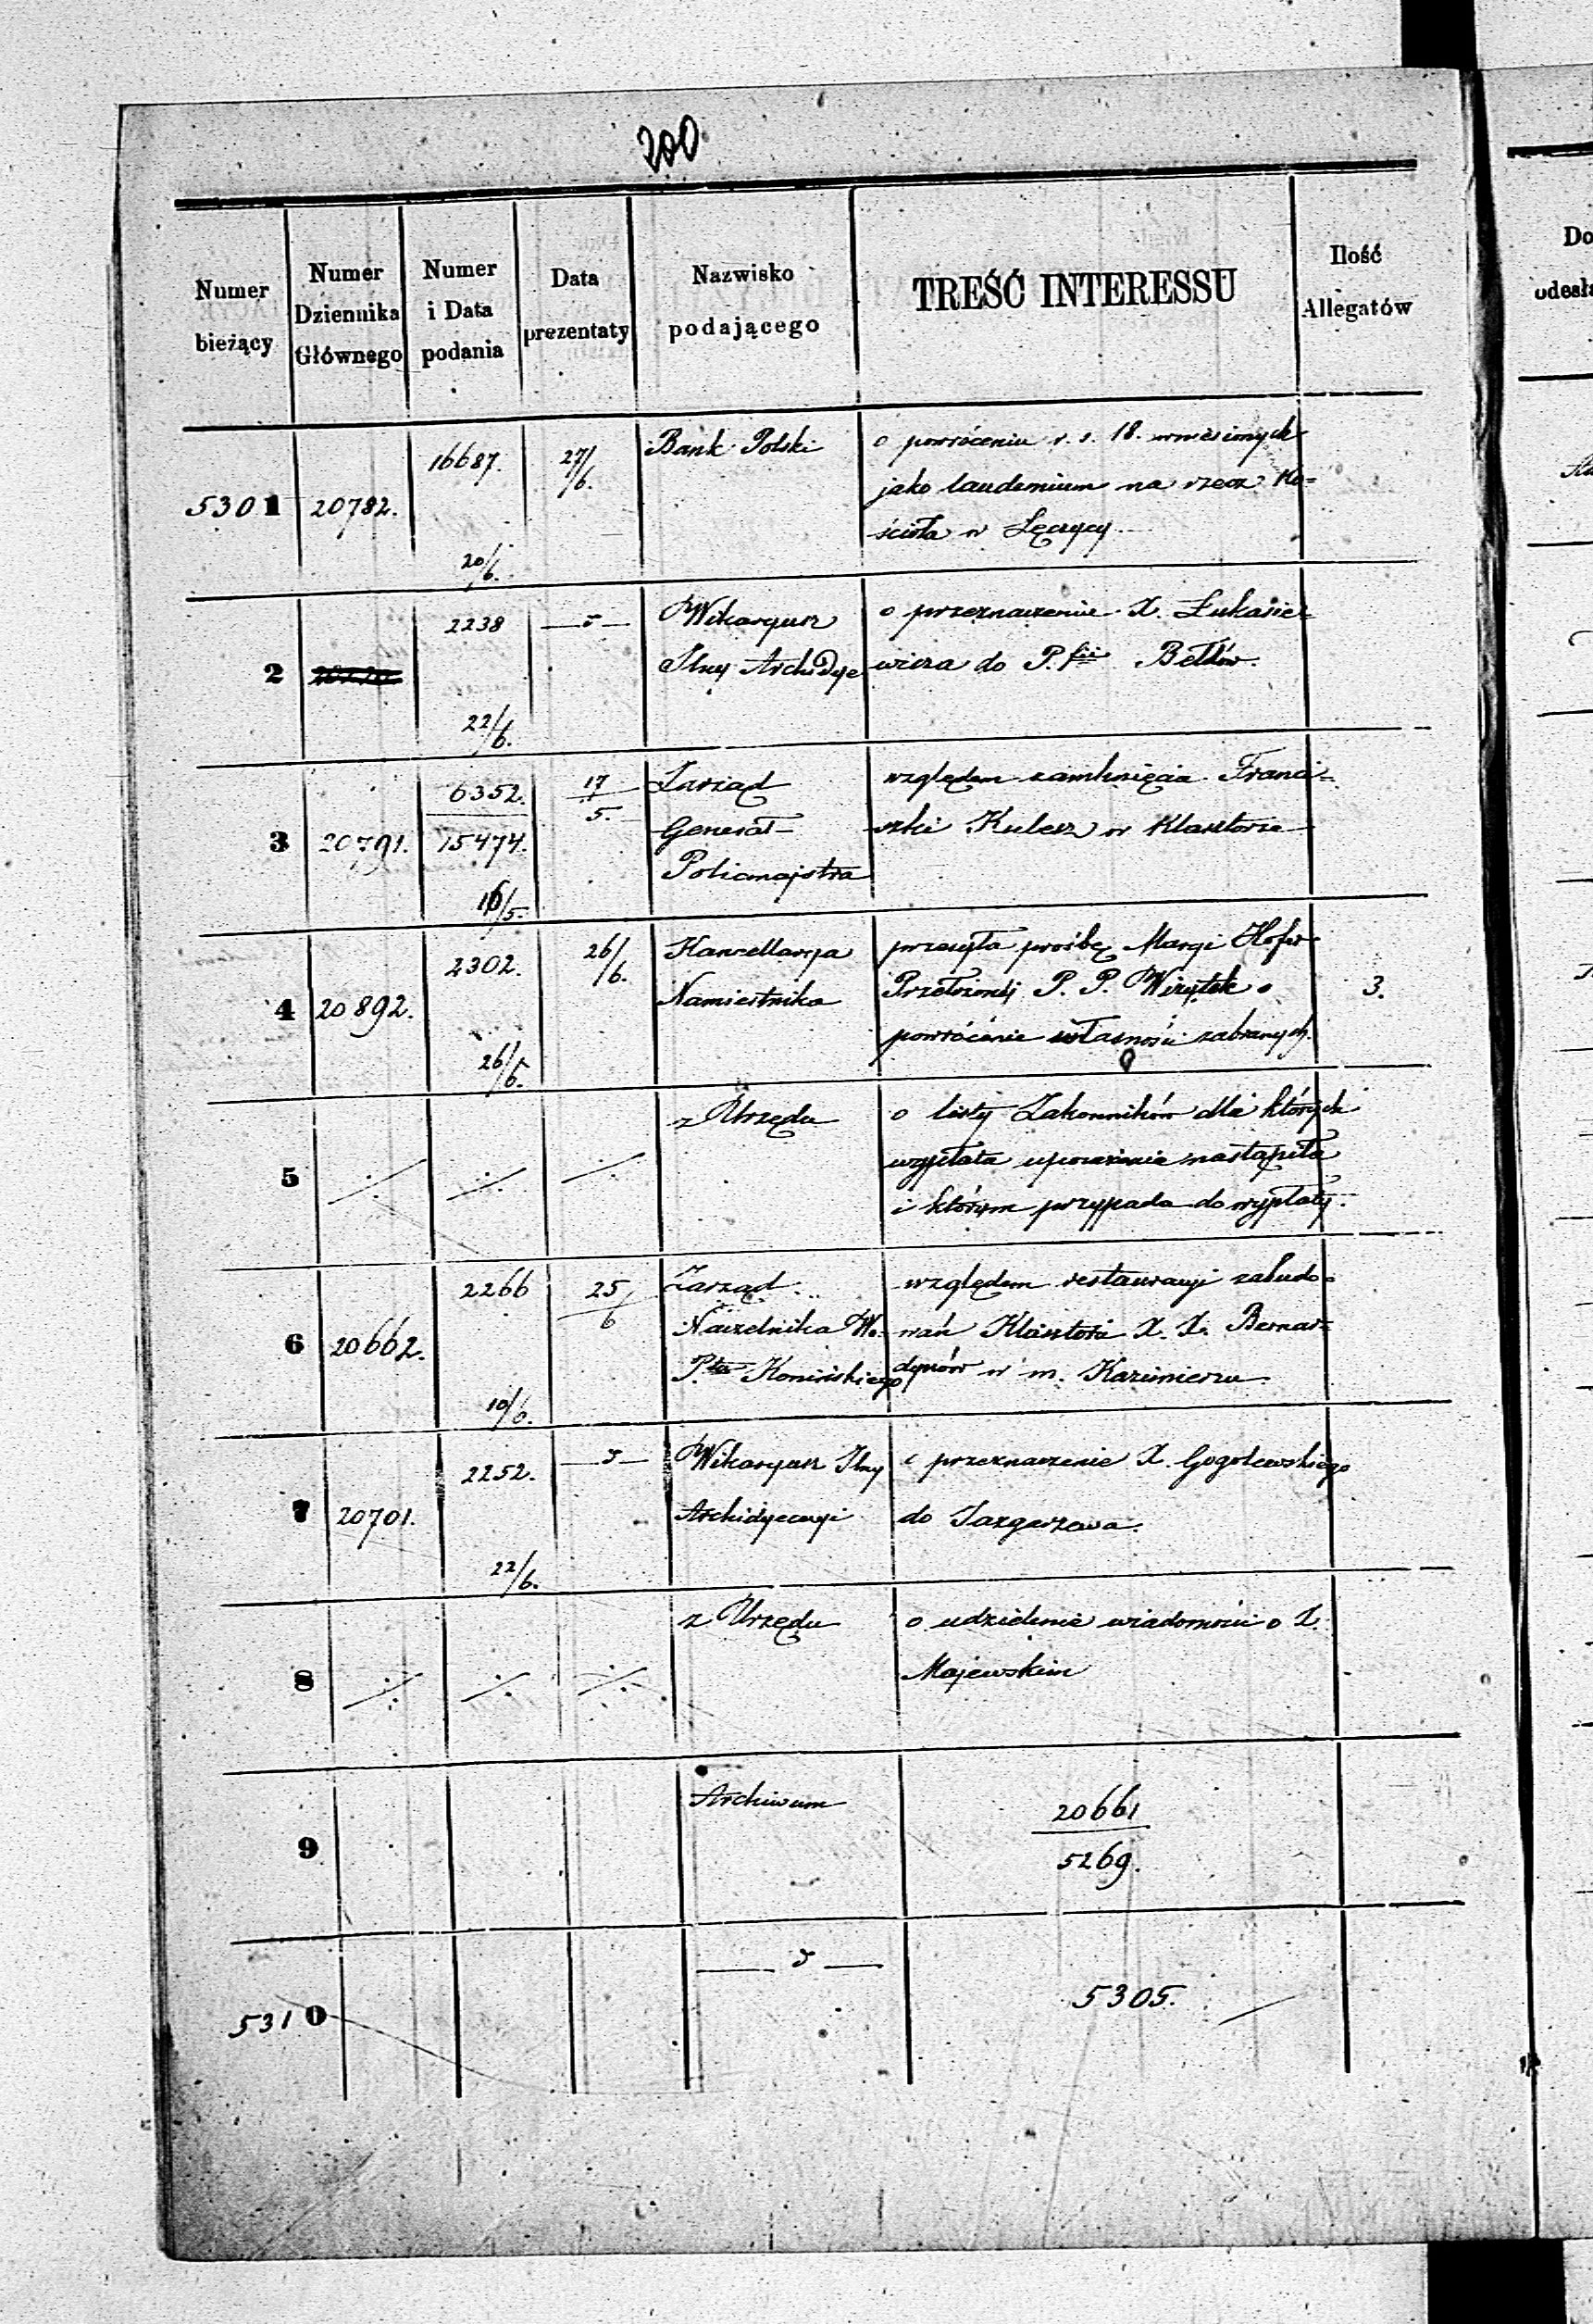 200
Numer bieżący
Numer Dziennika Głównego
Numer i Data podania
Data prezentaty
Nazwisko podającego
TREŚĆ INTERESSU
Ilość Allegatów
5301 20782. 16687. 20/6. 27/6. Bank Polski
o powrócenie r. s. 18. wniesionych
jako laudemium na rzecz Ko=
ścioła w Łęczycy
2 2238 22/6. —〃— Wikaryusz
Jlny Archidye
o przeznaczenie X. Łukasie=
wicza do P.fii Bełdów.
3 20791. 6352. 15474. 16/5. 17/5. Zarząd
Generał
Policmajstra
względem zamknięcia Franci=
szki Kulesz w Klasztorze
4 20892. 2302. 26/6. 26/6. Kancellarya
Namiestnika
przesyła prośbę Maryi
Przełożonéj P. P. Wizytek o
powrócenie własności zabranych.
3.
5 z Urzędu
o listy Zakonników dla których
wypłata uposażenia nastąpiła
i którym przypada do wypłaty.
6 20662. 2266 10/6. 25/6 Zarząd
Naczelnika Wo.
P.tu Konińskiego
względem restauracyi zabudo=
wań Klasztoru X. X. Bernar=
dynów w m. Kazimierzu
7 20701. 2252. 22/6. —〃— Wikaryusz Jlny
Archidyecezyi
o przeznaczenie X. Gogolewskiego
do Jazgarzewa.
8 z Urzędu
o udzielenie wiadomości o X.
Majewskim
9 Archiwum
20661
5269.
5310 —〃—
5305.
Do
odesła